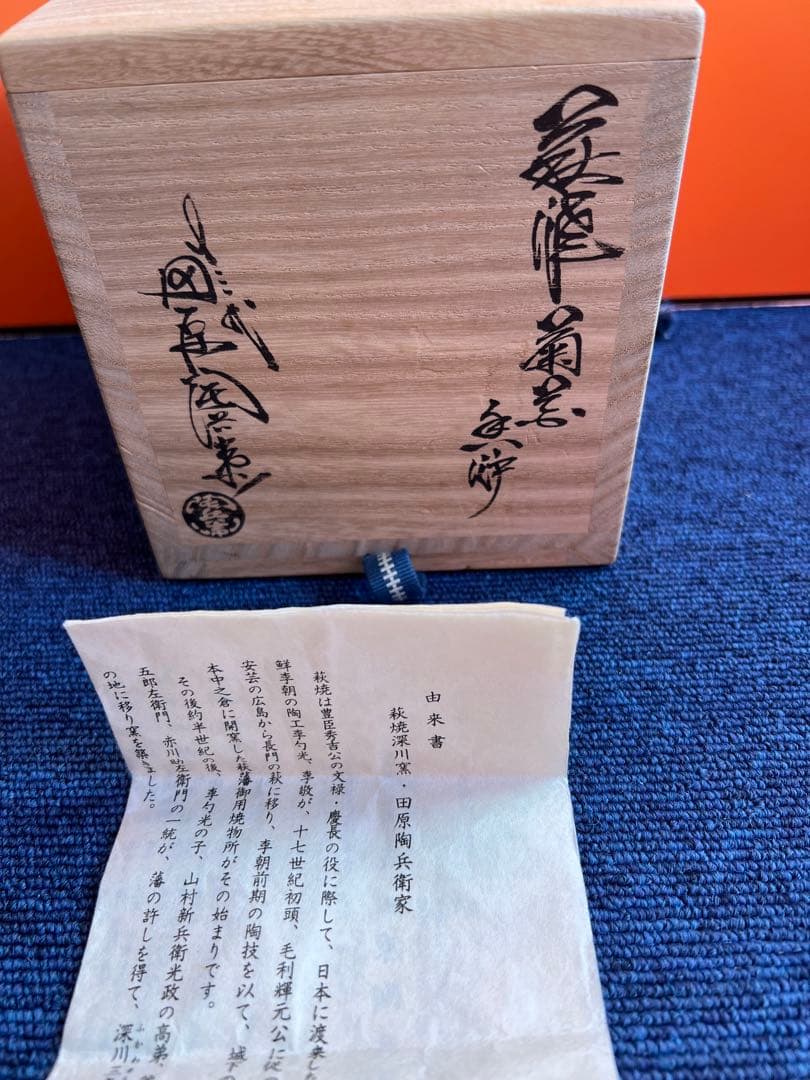 萩焼 菊花
香炉
十三代
田原陶兵衛
由来書
萩焼深川窯・田原陶兵衛家
萩焼は豊臣秀吉公の文禄・慶長の役に際して、日本に渡来した
鮮李朝の陶工李勺光、李敬が、十七世紀初頭、毛利輝元公に従
安芸の広島から長門の萩に移り、李朝前期の陶技を以て、城下の
本中之倉に開窯した萩藩御用焼物所がその始まりです。
その後約半世紀の後、李勺光の子、山村新兵衛光政の高弟、
五郎左衛門、赤川助左衛門の一統が、藩の許しを得て、深川三
の地に移り窯を築きました。